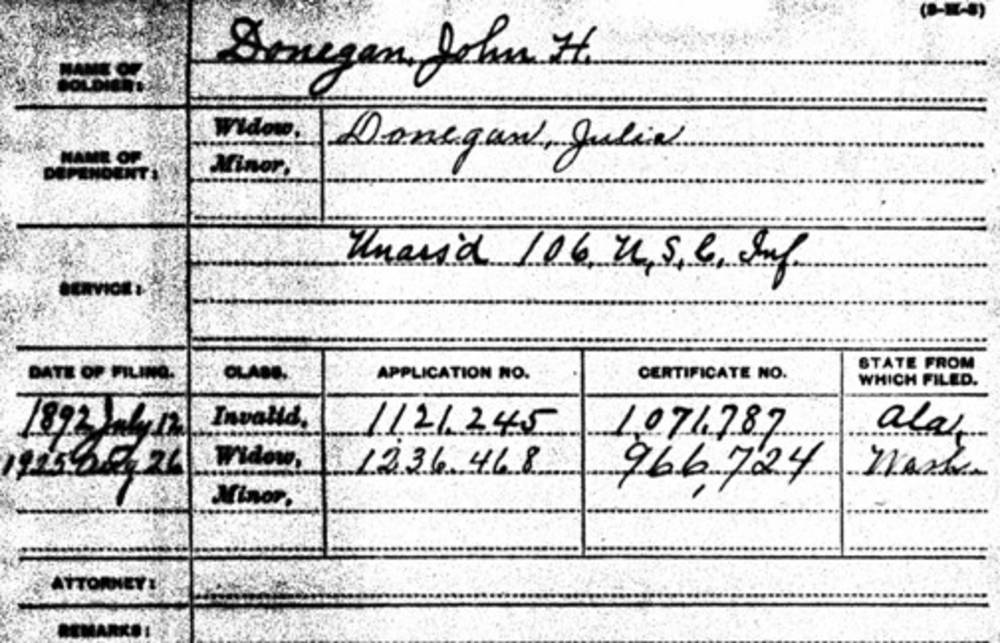 (3-M-3)
NAME OF SOLDIER: Donegan, John H.
NAME OF DEPENDENT: Widow, Donegan, Julia
Minor,
SERVICE: Unass'd 106, U.S.C. Inf.
DATE OF FILING. CLASS. APPLICATION NO. CERTIFICATE NO. STATE FROM WHICH FILED.
1892 July 12 Invalid, 1121.245 1071.787 Ala.
1925 Aug 26 Widow, 1236.468 966,724 Wash.
Minor,
ATTORNEY:
REMARKS: